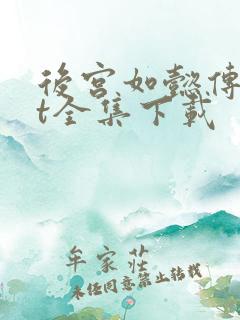 後宮如懿傳
t全集下載
牟家莊
未經同意禁止轉載